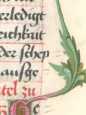 erledigt
eichkait
der schep
ausge
tel zu